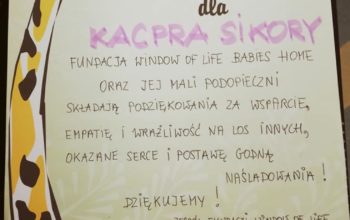 dla
KACPRA SIKORY
FUNDACJA WINDOW OF LIFE BABIES HOME
ORAZ JEJ MALI PODOPIECZNI
SKŁADAJĄ PODZIĘKOWANIA ZA WSPARCIE,
EMPATIĘ I WRAŻLIWOŚĆ NA LOS INNYCH,
OKAZANE SERCE I POSTAWĘ GODNĄ
NAŚLADOWANIA!
DZIĘKUJEMY!
FUNDACJI WINDOW OF LIFE